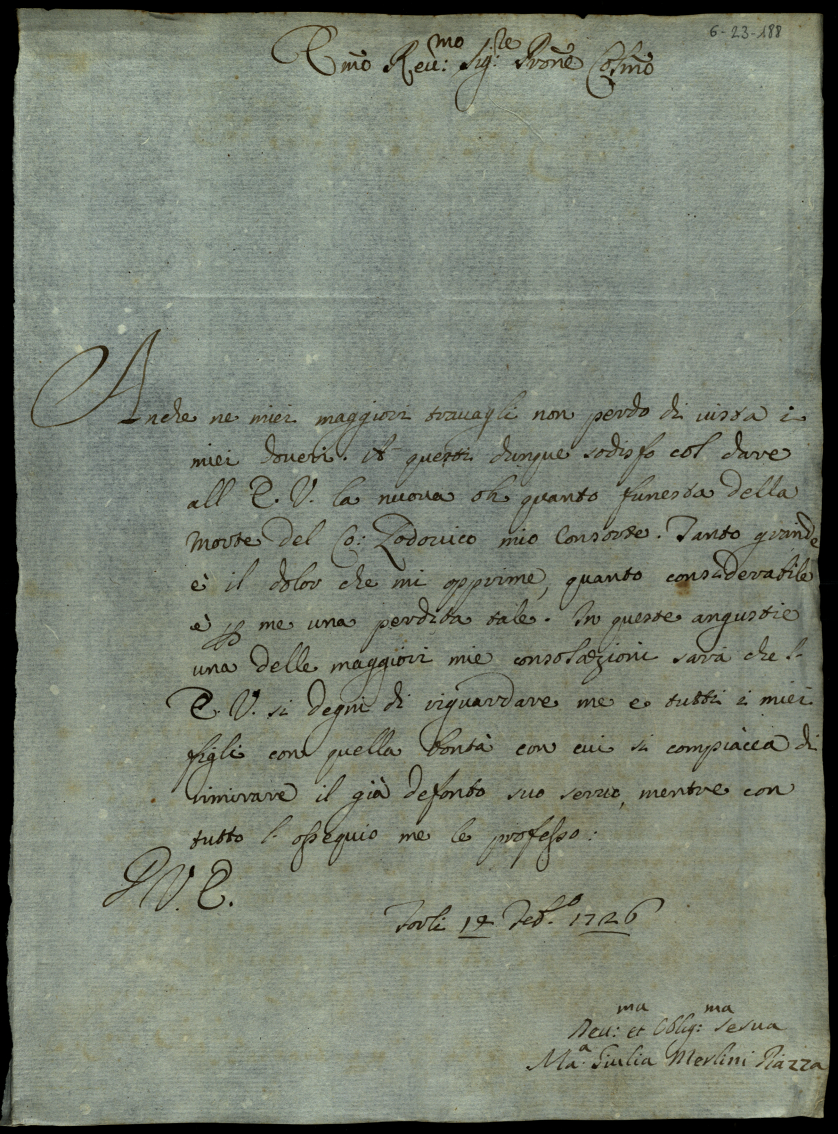 6-23-188
Emõ Reu:mo Sig:re Prone Colmõ
Anche ne miei maggiori trauagli non perdo di uista i
miei doueri. A questi dunque sodisfo col dare
all E. V. la nuoua oh quanto funesta della
morte del Co: Lodouico mio Consorte. Tanto grande
è il dolor che mi opprime, quanto considerabile
è p me una perdita tale. In queste angustie
una delle maggiori mie consolazioni sarà che l'
E. V. si degni di riguardare me e tutti i miei
figli con quella bontà con cui si compiacea di
rimirare il già defonto suo seruo, mentre con
tutto l' ossequio me le professo:
D V. E.
Forlì Feb.o 1726
Deu:ma et Oblig:ma Serua
Ma:a Giulia Merlini Piazza